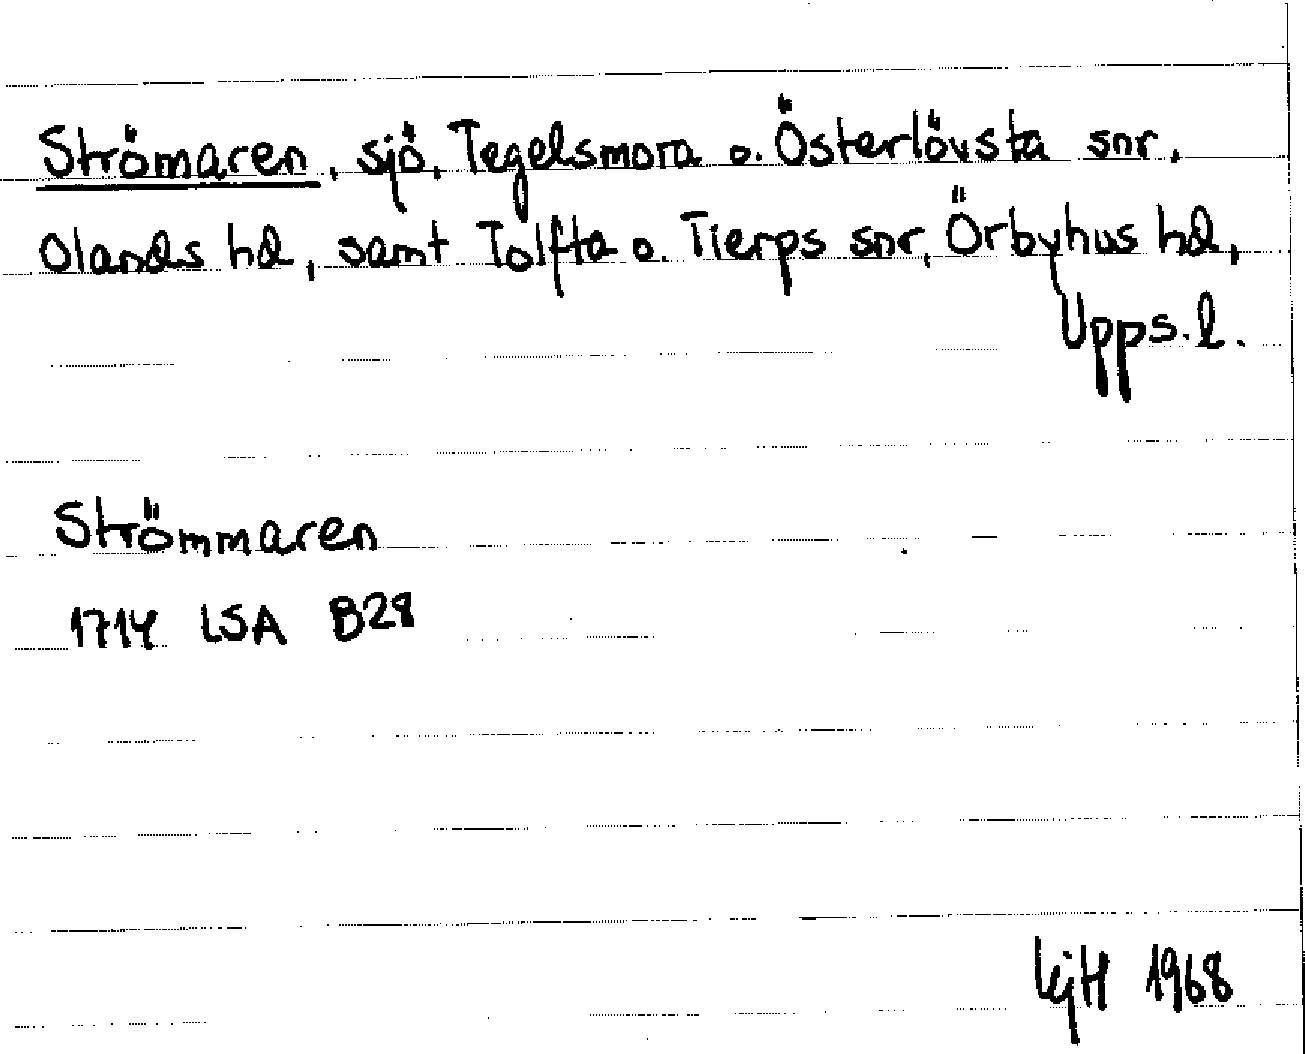 Strömaren, sjö, Tegelsmora o. Österlövsta snr,
Olands hd, samt Tolfta o. Tierps snr, Örbyhus hd,
Upps. l.
Strömmaren
1714 LSA B28
1968